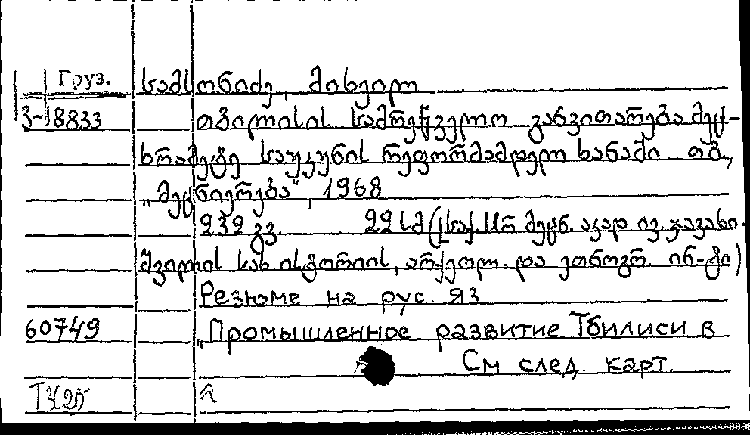 Груз. სამსონიძე, მიხეილ
3-18833 თბილისის სამრეწველო განვითარება მეც-
ხრამეტე საუკუნის რეფორმამდელ ხანაში თბ.,
„მეცნიერება“, 1968
232 გვ. 22 სმ (საქ. სსრ მეცნ. აკად ივ. ჯავახი-
შვილის სახ ისტორიის, არქეოლ. და ეთნოგრ. ინ-ტი)
Резюме на рус. яз
60749 „Промышленное развитие Тбилиси в
См след карт.